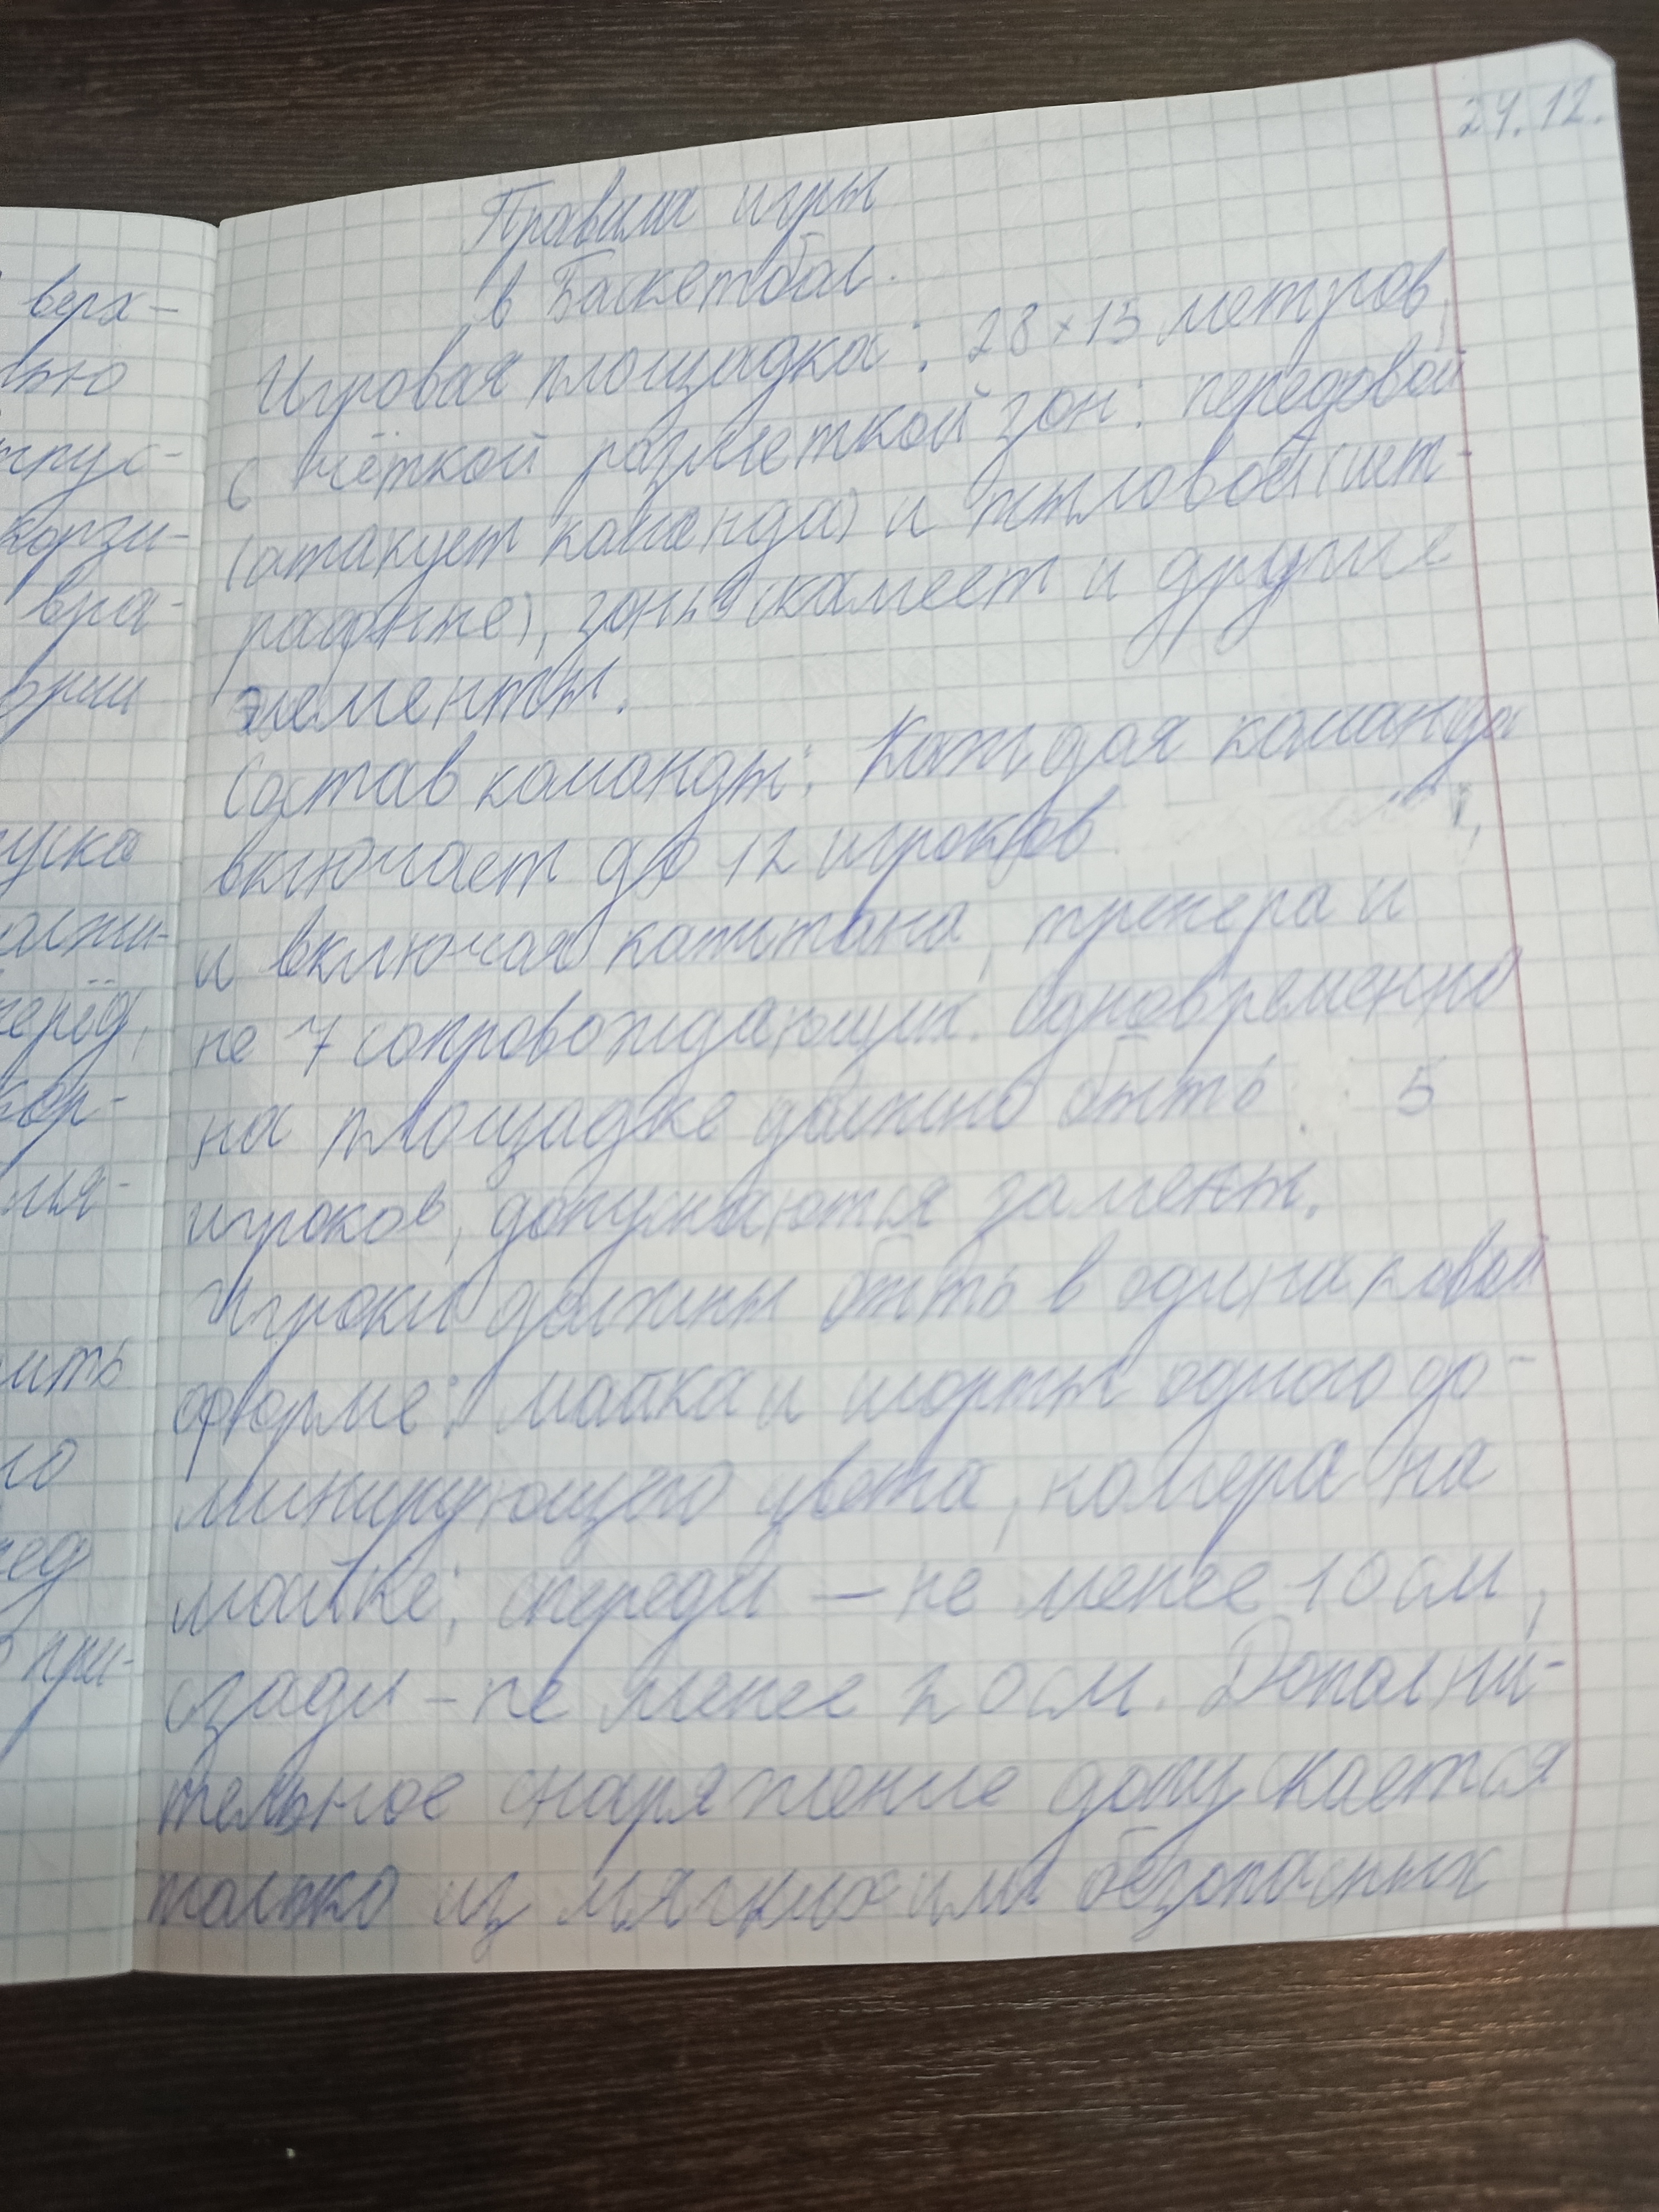 24.12.
Правила игры
в Баскетбол.
Игровая площадка: 28×15 метров,
с чёткой разметкой зон: передовой
(атакует команда) и тыловой (шт-
рафные), зоны скамеет и другие
элементы.
Состав команды: Каждая команда
включает до 12 игроков
и включая капитана, тренера и
не 7 сопровождающих. Одновременно
на площадке должно быть 5
игроков, допускаются замены.
Игроки должны быть в одинаковой
форме: майка и шорты одного до-
минирующего цвета, номера на
майке; спереди – не менее 10 см,
сзади – не менее 20 см. Дополни-
тельное снаряжение допускается
только из мягких или безопасных
верх-
лью
тпус-
корзи-
вра-
уска
перёд,
ить
го
при-